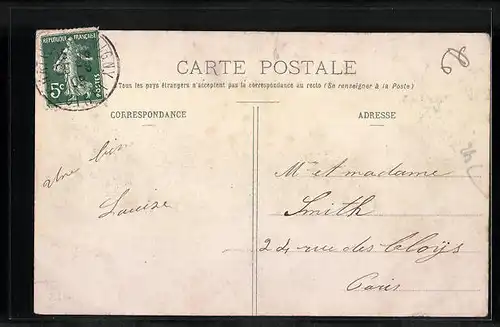 REPUBLIQUE FRANÇAISE
5c POSTES
CARTE POSTALE
Tous les pays étrangers n'acceptent pas la correspondance au recto (Se renseigner à la Poste)
CORRESPONDANCE
ADRESSE
une bise
Louise
Mr et madame
Smith
24 rue des Cloÿs
Paris